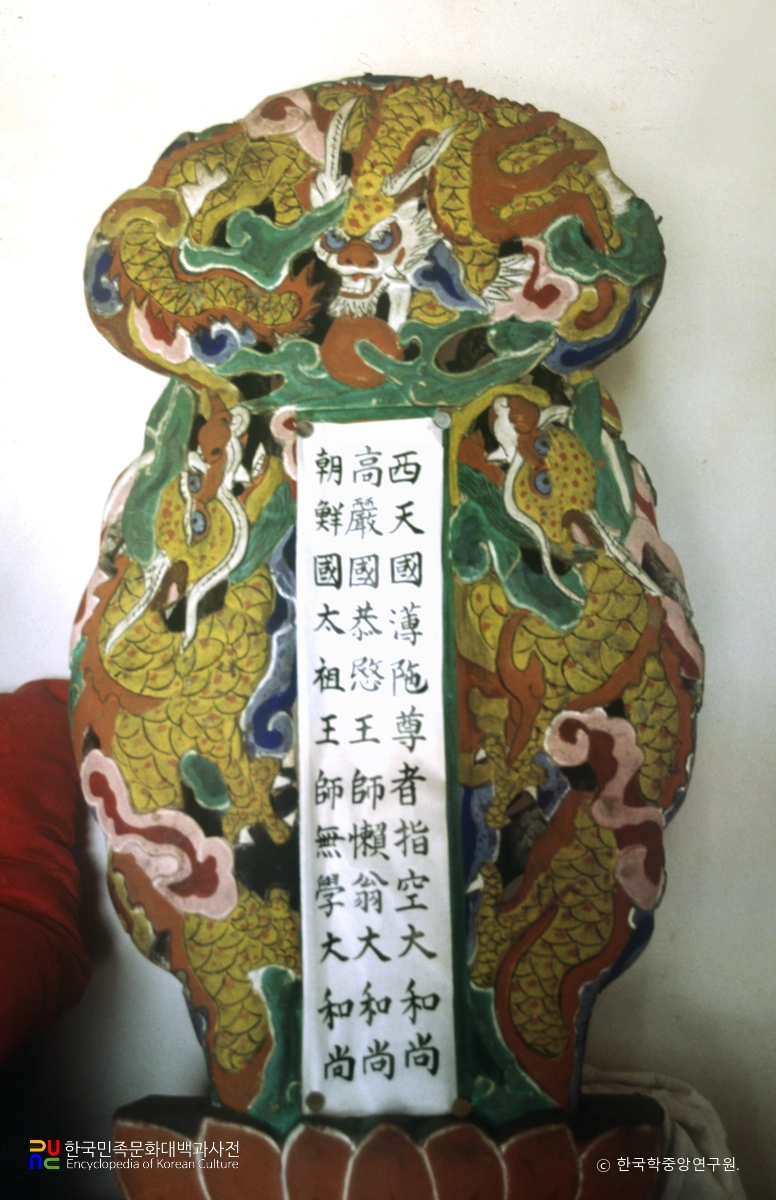 西天國薄陁尊者指空大和尚
高嚴國恭愍王師懶翁大和尚
朝鮮國太祖王師無學大和尚
한국민족문화대백과사전
Encyclopedia of Korean Culture
© 한국학중앙연구원.